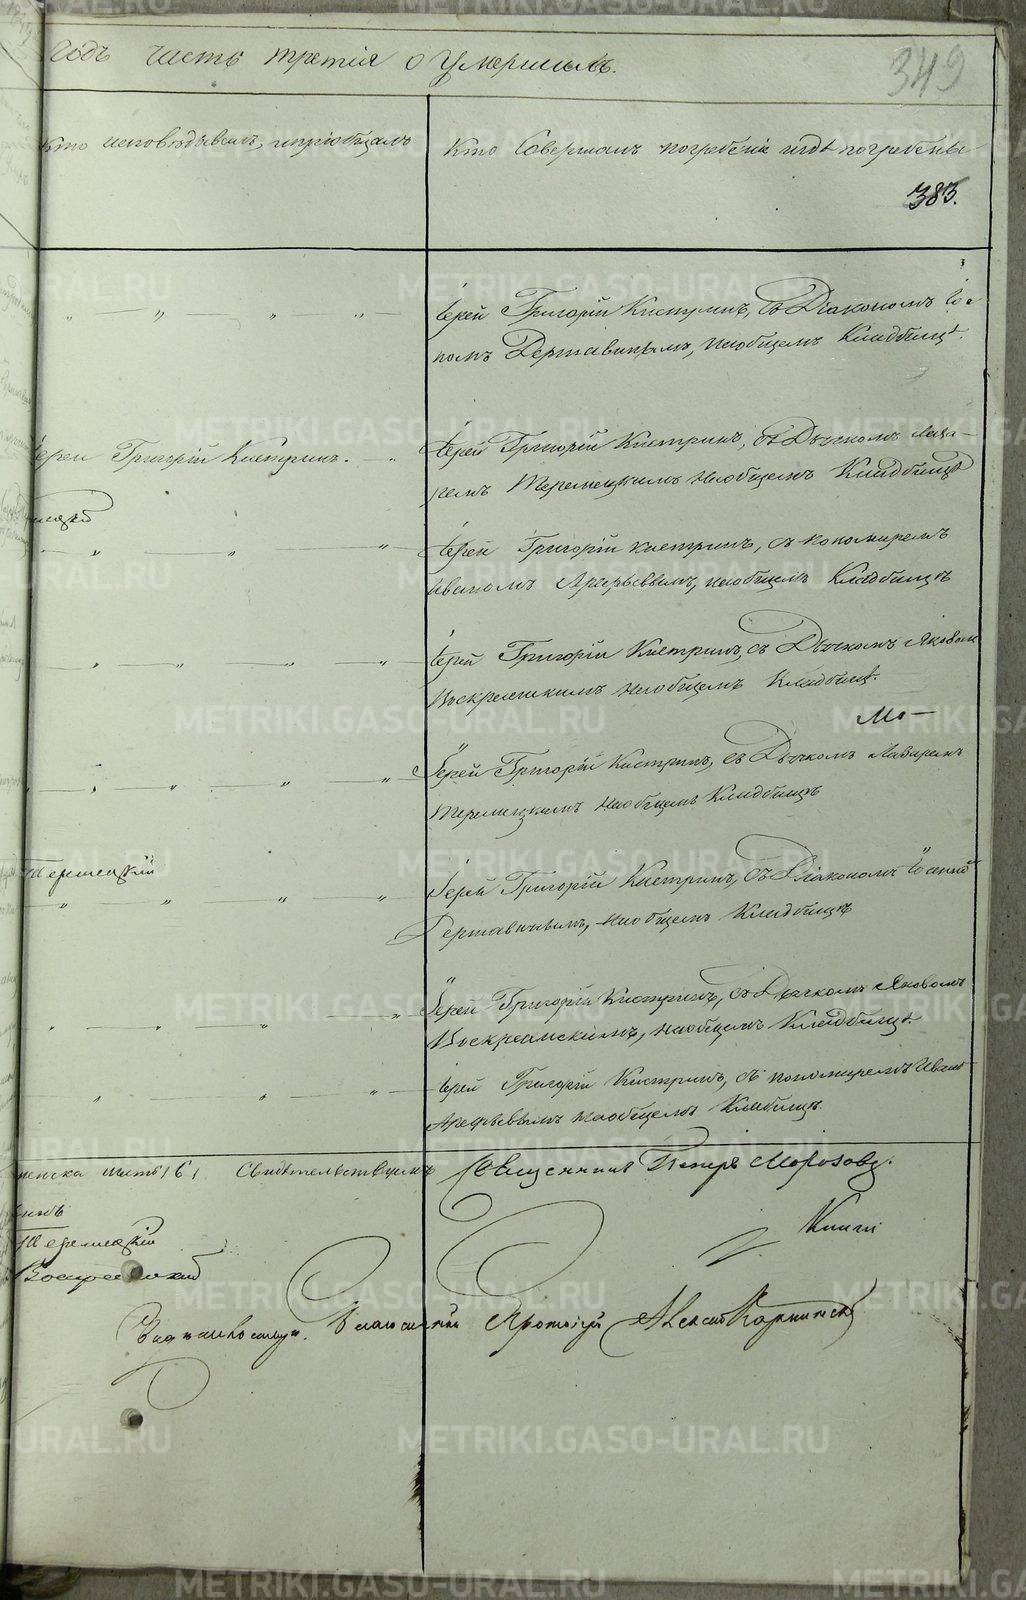 Годъ часть третія о умершихъ.
349
Кто исповѣдывалъ, и пріобщалъ
Кто Совершалъ погребеніе и гдѣ погребены
383.
Іерей Григорій Кистринъ, съ Діакономъ Іо-
номъ Державинымъ, на общемъ Кладбищѣ.
Іерей Григорій Кистринъ.
Іерей Григорій Кистринъ, съ Дьячкомъ Лаза-
ремъ Терлецкимъ на общемъ Кладбищѣ
Іерей Григорій Кистринъ, съ пономаремъ
Иваномъ Арефьевымъ, на общемъ Кладбищѣ
Іерей Григорій Кистринъ, съ Дьячкомъ Яковомъ
Воскресенскимъ на общемъ Кладбищѣ.
Мо-
Іерей Григорій Кистринъ, съ Дьячкомъ Лазаремъ
Терлецкимъ на общемъ Кладбищѣ
Терлецкій
Іерей Григорій Кистринъ, съ Діакономъ Іоною
Державинымъ, на общемъ Кладбищѣ
Іерей Григорій Кистринъ, съ Дьячкомъ Яковомъ
Воскресенскимъ, на общемъ Кладбищѣ
Іерей Григорій Кистринъ, съ пономаремъ Иваномъ
Арефьевымъ на общемъ Кладбищѣ.
Свидѣтельствовалъ Священникъ Петръ Морозовъ.
Терлецкій
Книги
Воскресенскій
Благочинный Протоіерей
METRIKI.GASO-URAL.RU